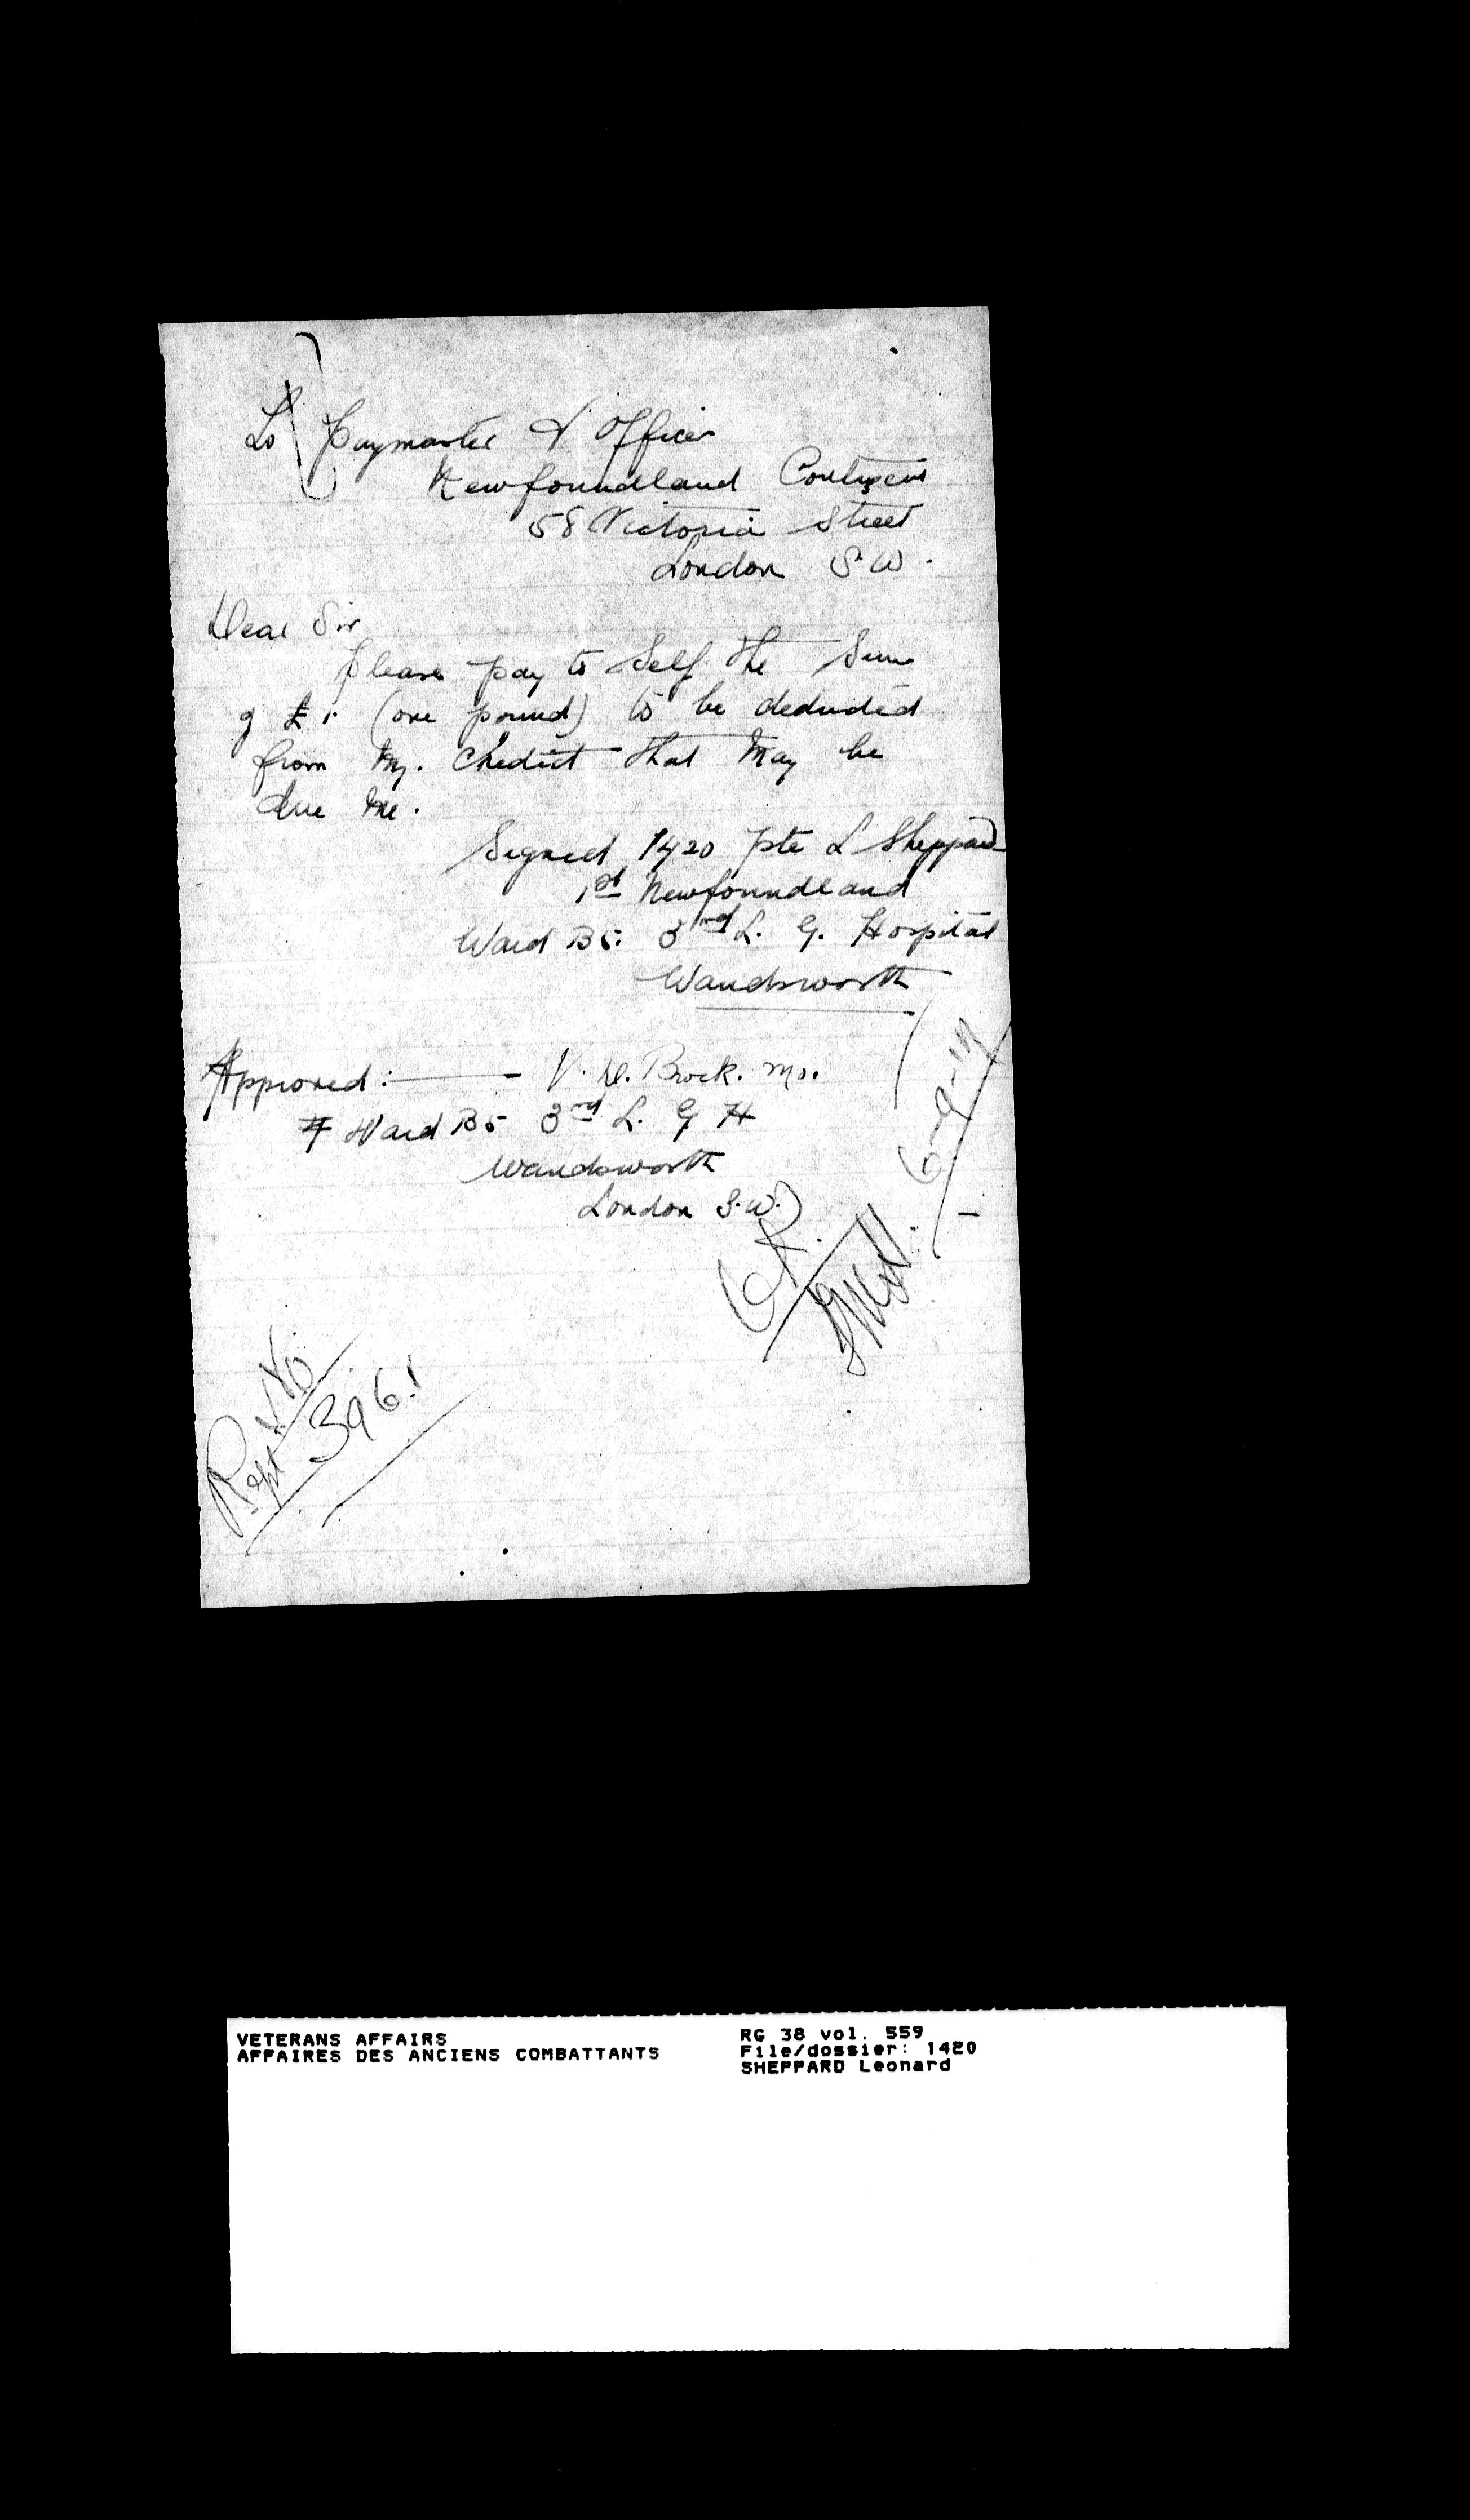 To Paymaster & Officer
Newfoundland Contigent
58 Victoria Street
London S.W.
Dear Sir
Please pay to Self the Sum
of £1. (one pound) to be deducted
from my. Chedict that may be
due me.
Signed 1420 Pte L Sheppard
1st Newfoundland
Ward B5. 3rd L. G. Hospital
Wandsworth
Approved: V. D. Brock. Mo.
Ward B5 3rd L. G H
Wandsworth
London S.W.
6-9-17
OK.
Rept No
3961
VETERANS AFFAIRS
AFFAIRES DES ANCIENS COMBATTANTS
RG 38 vol. 559
File/dossier: 1420
SHEPPARD Leonard